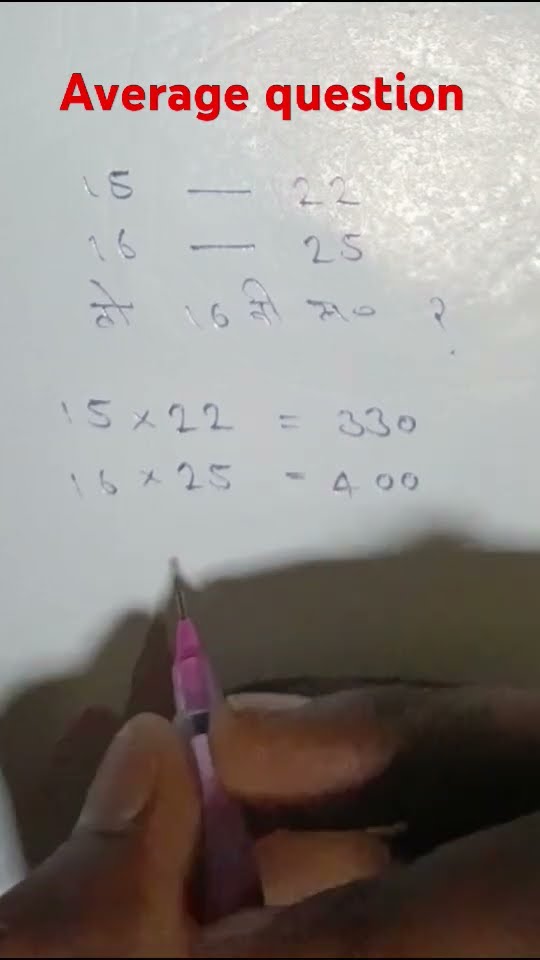 Average question
15 — 22
16 — 25
तो 16 वी सं० ?
15 × 22 = 330
16 × 25 = 400